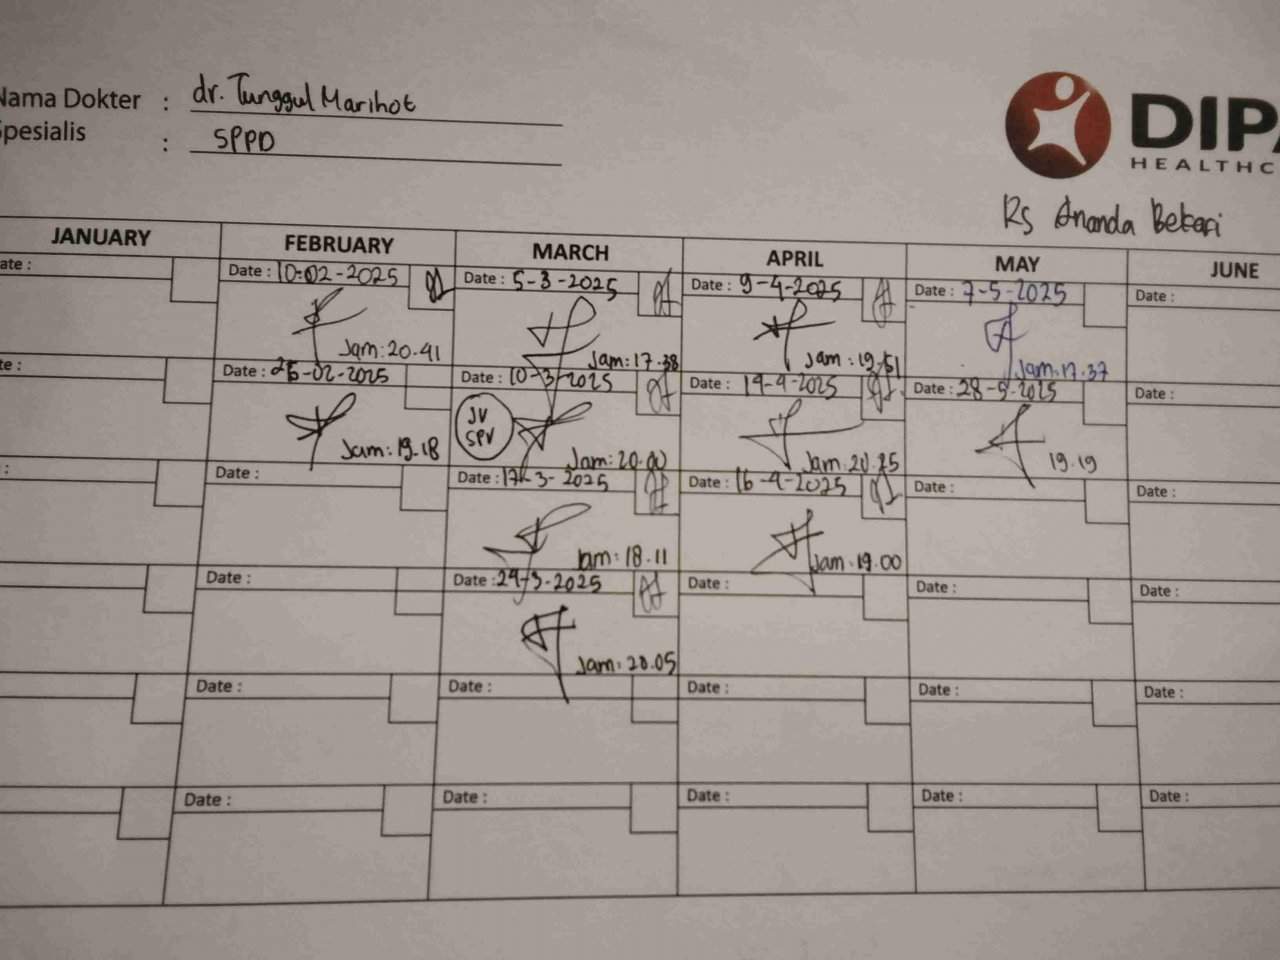 Nama Dokter : dr. Tunggul Marihot
Spesialis : SPPD
DIPA
HEALTHC
Rs Ananda Bekasi
JANUARY FEBRUARY MARCH APRIL MAY JUNE
ate : Date : 10-02-2025 Date : 5-3-2025 Date : 9-4-2025 Date : 7-5-2025 Date :
Jam: 20.41 Jam: 17.38 Jam : 19.51 Jam: 17.37
te : Date : 26-02-2025 Date : 10-3-2025 Date : 14-4-2025 Date : 28-5-2025 Date :
JV
SPV
Jam: 19.18 Jam: 20.00 Jam. 20.25 19.19
: Date : Date : 17-3-2025 Date : 16-4-2025 Date : Date :
Jam: 18.11 Jam. 19.00
Date : Date : 24-3-2025 Date : Date : Date :
Jam: 20.05
Date : Date : Date : Date : Date :
Date : Date : Date : Date : Date :